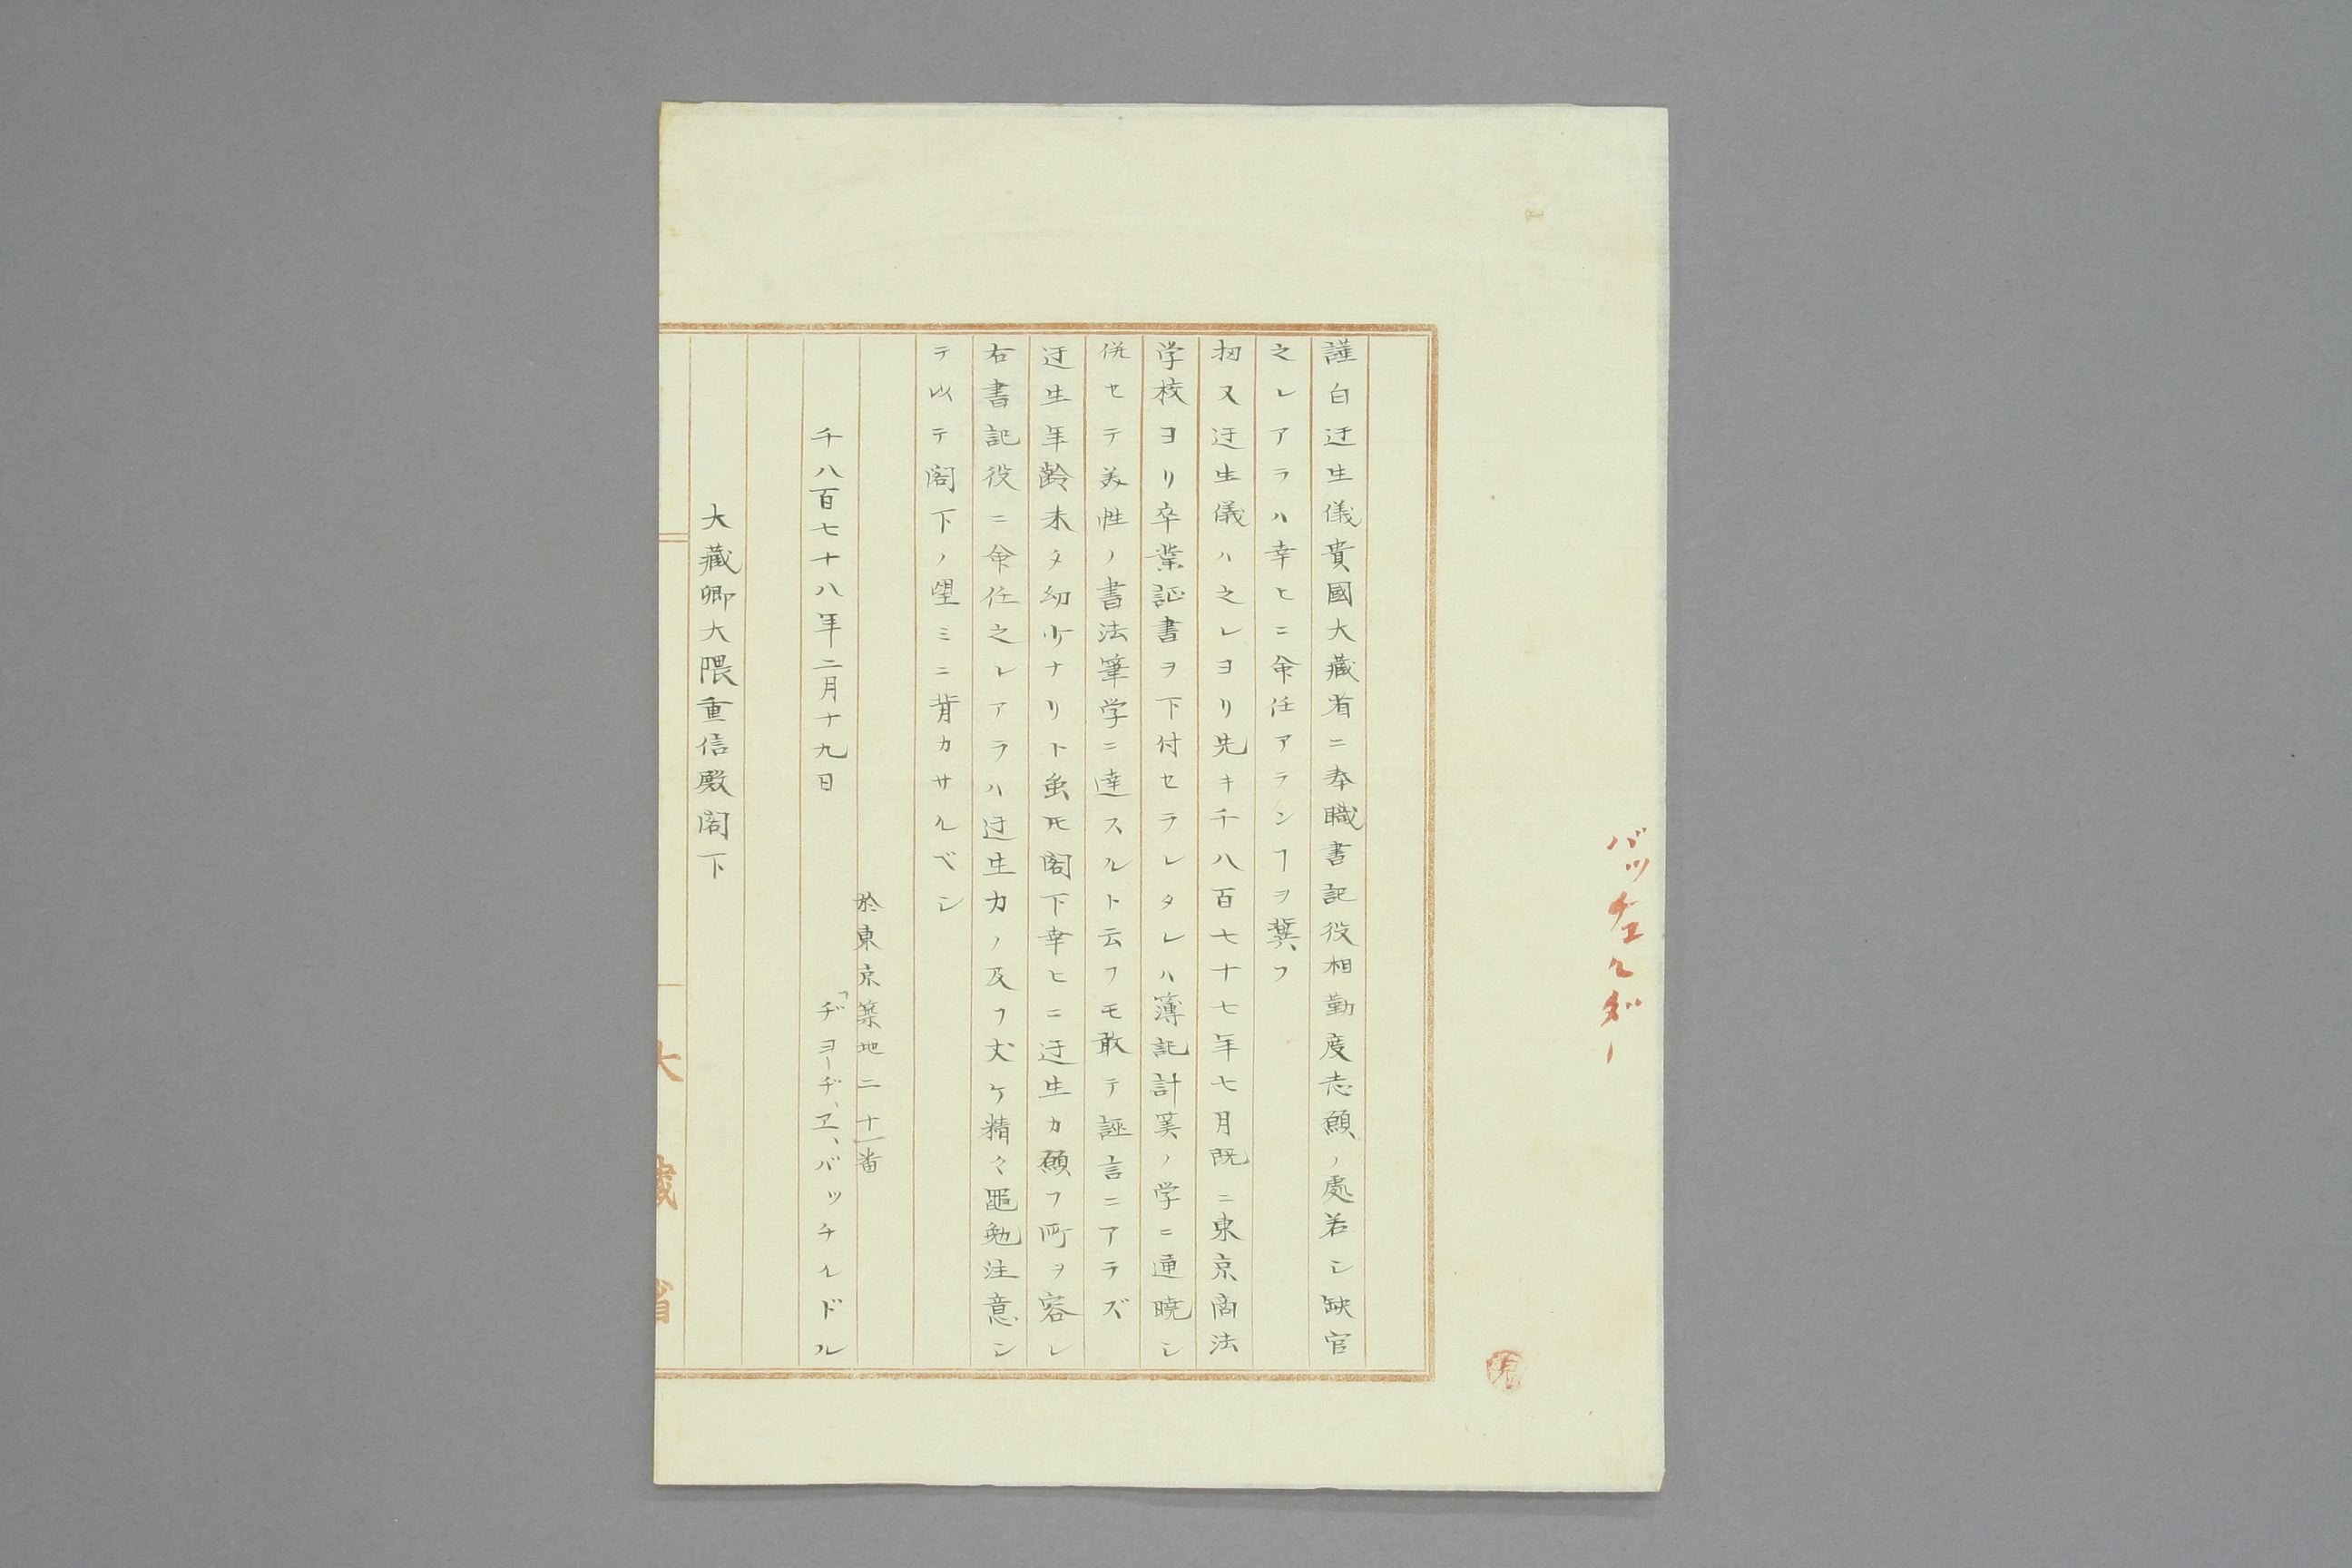 バッチェルダー
謹白迂生儀貴國大藏省ニ奉職書記役相勤度志願ノ處若シ缺官
之レアラハ幸ヒニ命任アランヿヲ冀フ
扨又迂生儀ハ之レヨリ先キ千八百七十七年七月既ニ東京商法
学校ヨリ卒業証書ヲ下付セラレタレハ簿記計筭ノ学ニ通曉シ
併セテ美性ノ書法筆学ニ達スルト云フモ敢テ誣言ニアラズ
迂生年齢未タ幼少ナリト虽𪜈閣下幸ヒニ迂生カ願フ所ヲ容レ
右書記役ニ命任之レアラハ迂生力ノ及フ丈ケ精々黽勉注意シ
テ以テ閣下ノ望ミニ背カサルベシ
於東京築地二十一番
千八百七十八年二月十九日
「ヂヨーヂ、ヱ、バッチルドル
大藏卿大隈重信殿閣下
大藏省